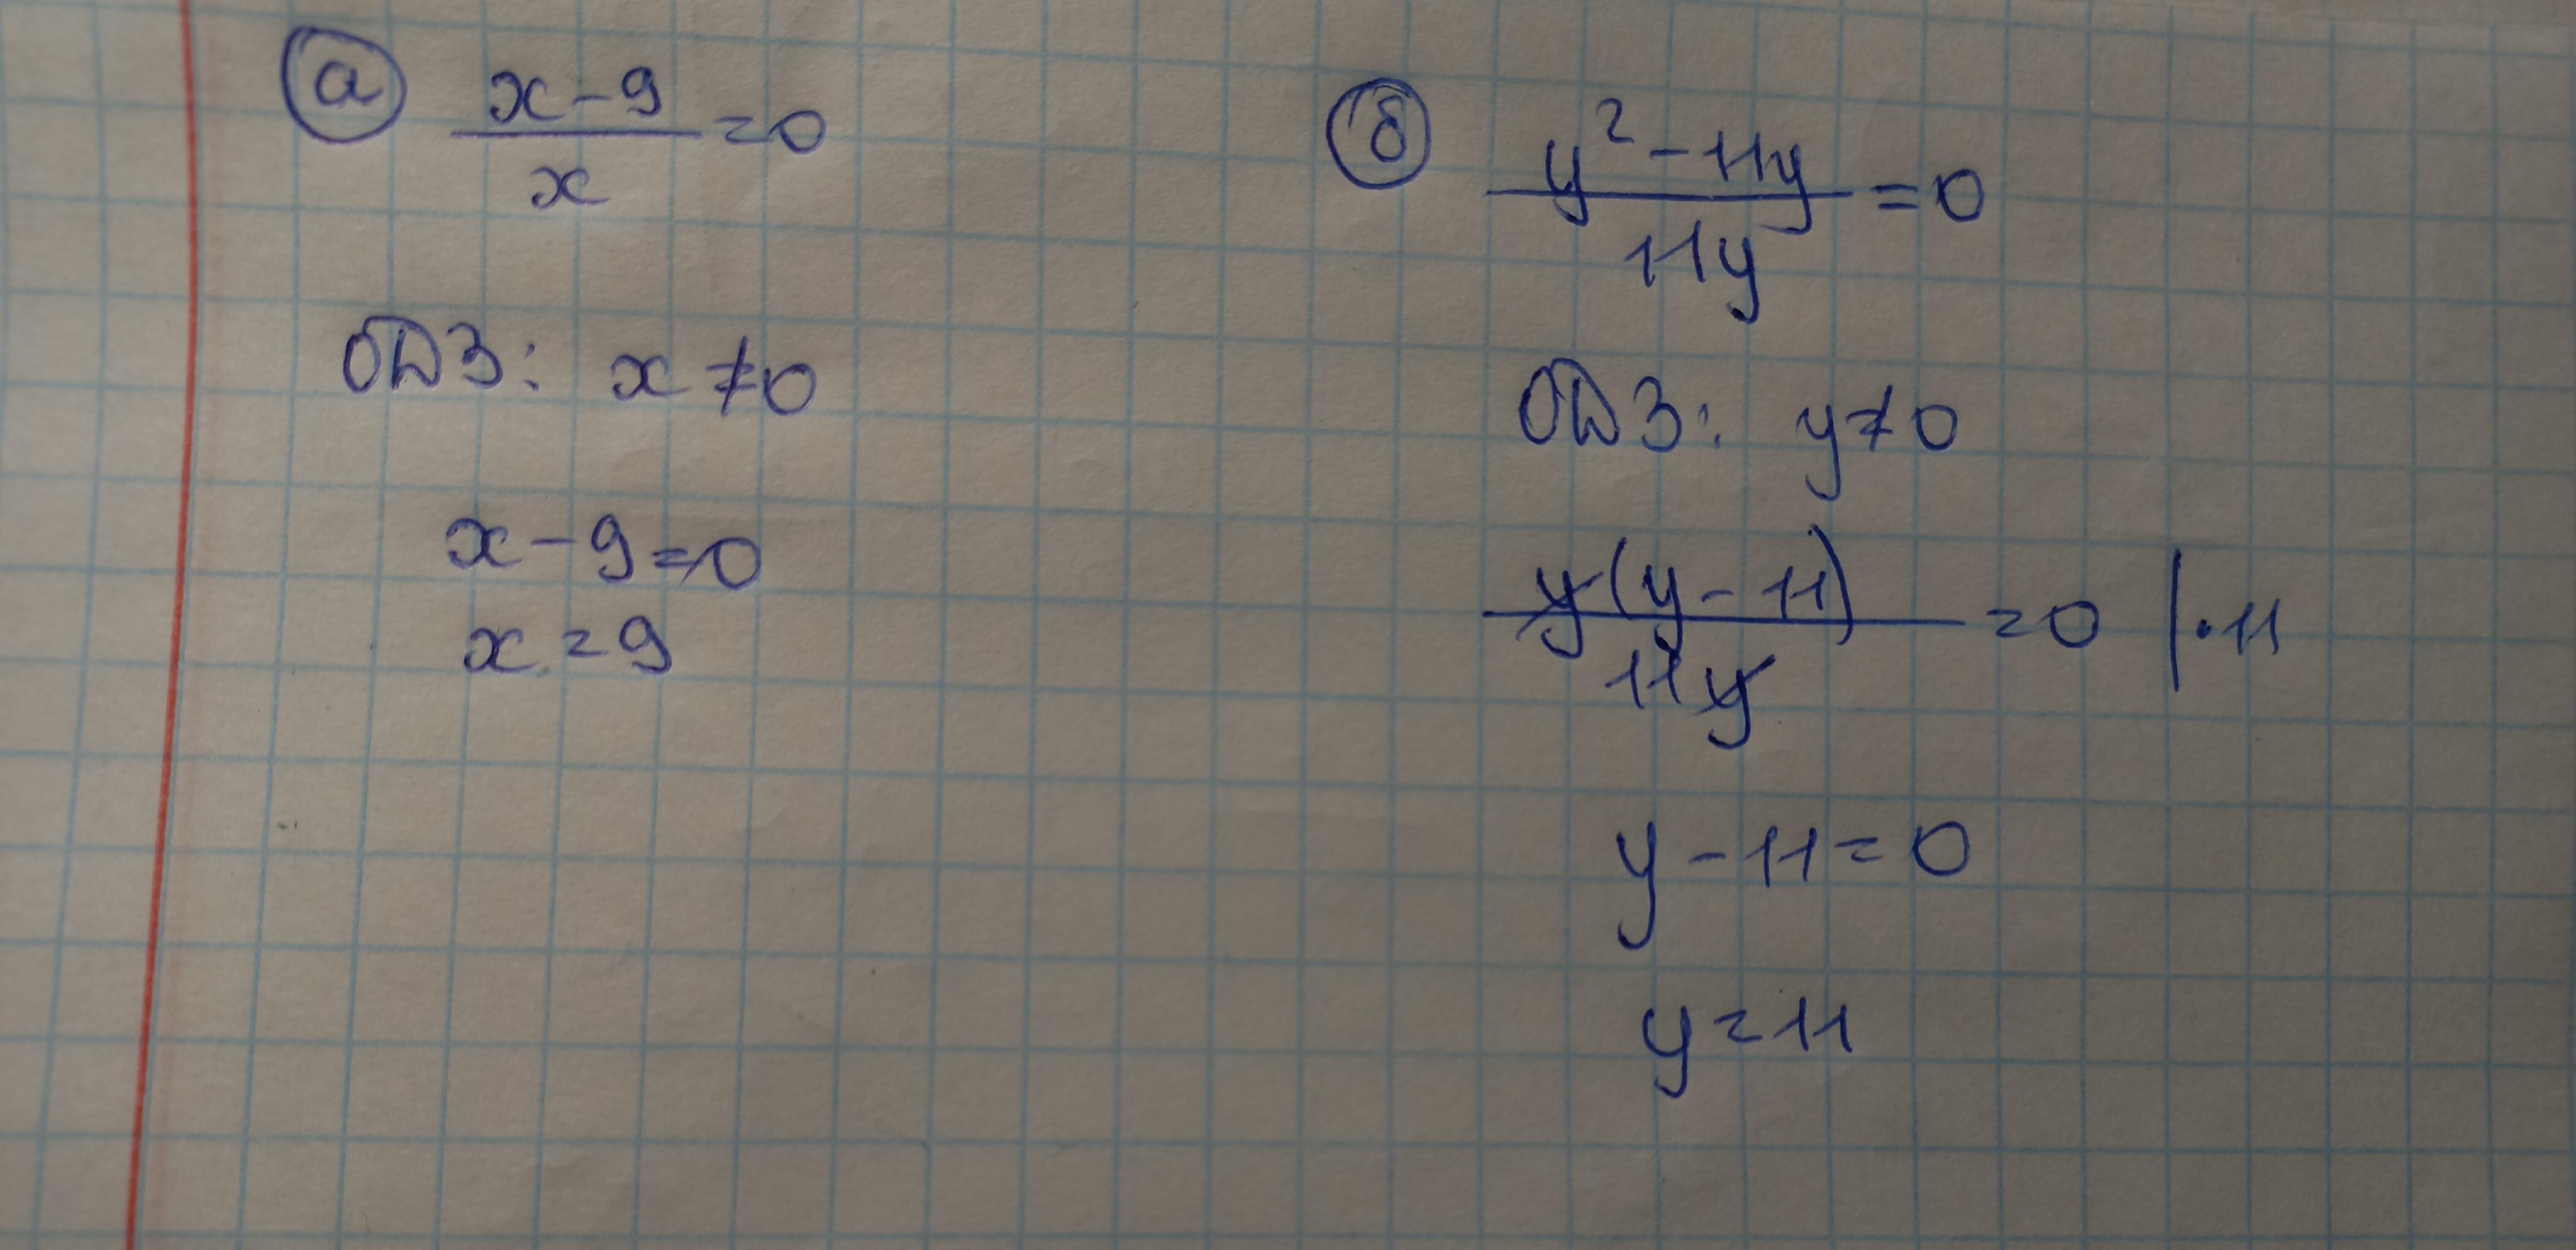 а) (x-9)/x = 0
ОДЗ: x ≠ 0
x - 9 = 0
x = 9
б) (y² - 11y)/(11y) = 0
ОДЗ: y ≠ 0
y(y - 11)/(11y) = 0 | · 11
y - 11 = 0
y = 11